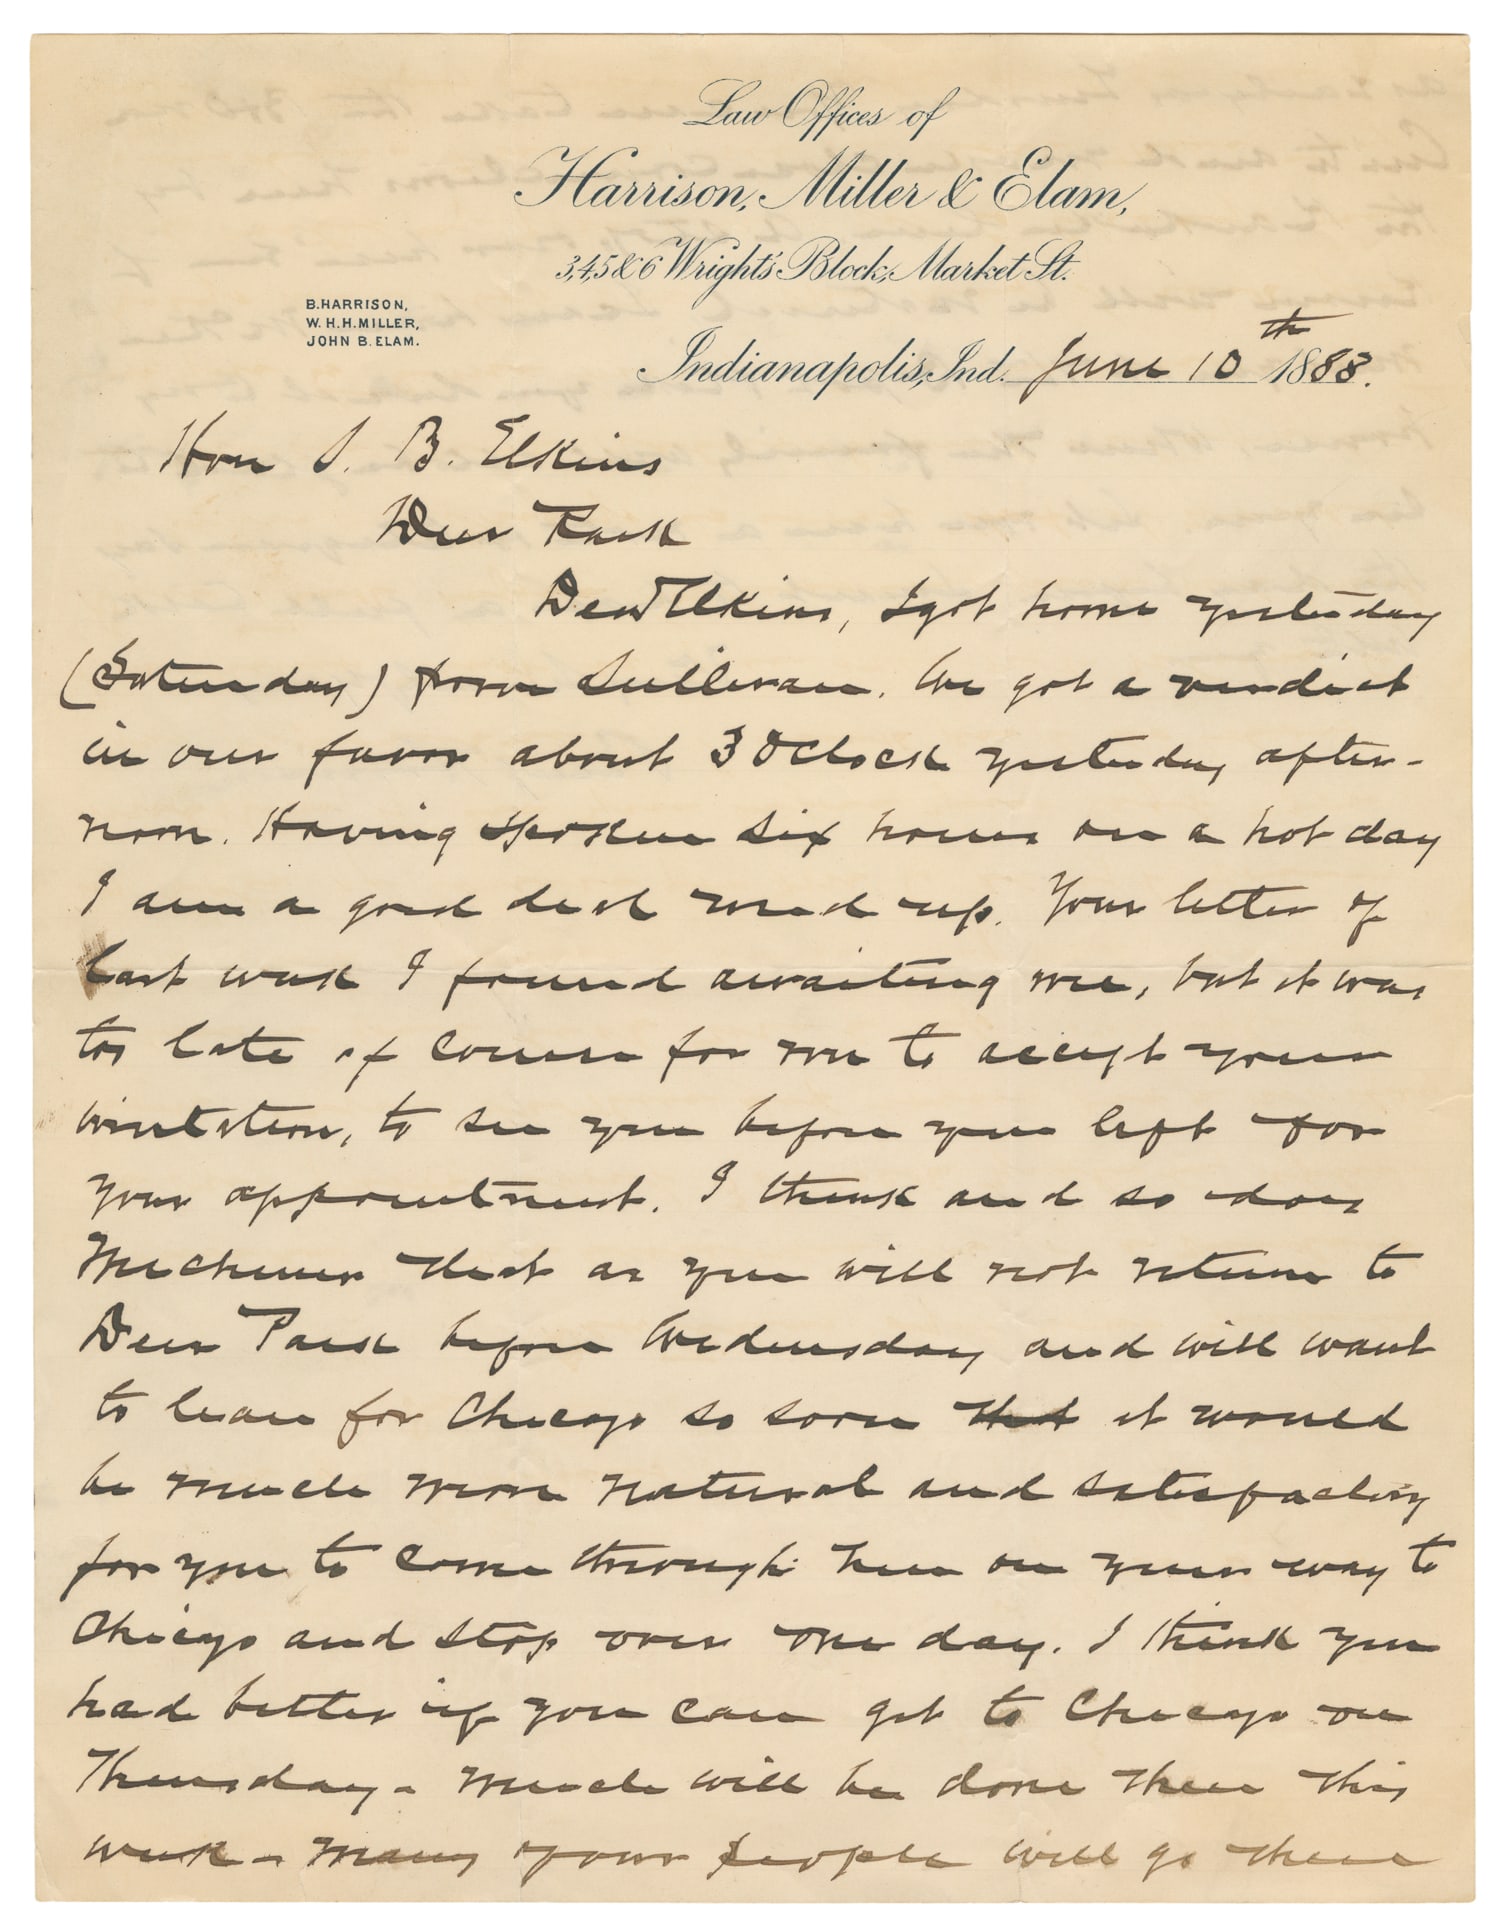 Law Offices of
Harrison, Miller & Elam,
3,4,5 & 6 Wright's Block, Market St.
B. HARRISON,
W. H. H. MILLER,
JOHN B. ELAM.
Indianapolis, Ind. June 10th 1888.
Hon S. B. Elkins
Deer Park
Dear Elkins, I got home yesterday
(Saturday) from Sullivan. We got a verdict
in our favor about 3 OClock yesterday after-
noon. Having spoken six hours on a hot day
I am a good deal used up. Your letter of
last week I found awaiting me, but it was
too late of course for me to accept your
invitation, to see you before you left for
your appointment. I think and so does
Michener that as you will not return to
Deer Park before Wednesday and will want
to leave for Chicago so soon that it would
be much more natural and satisfactory
for you to come through here on your way to
Chicago and stop over one day. I think you
had better if you can get to Chicago on
Thursday - much will be done there this
week - many of our people will go there